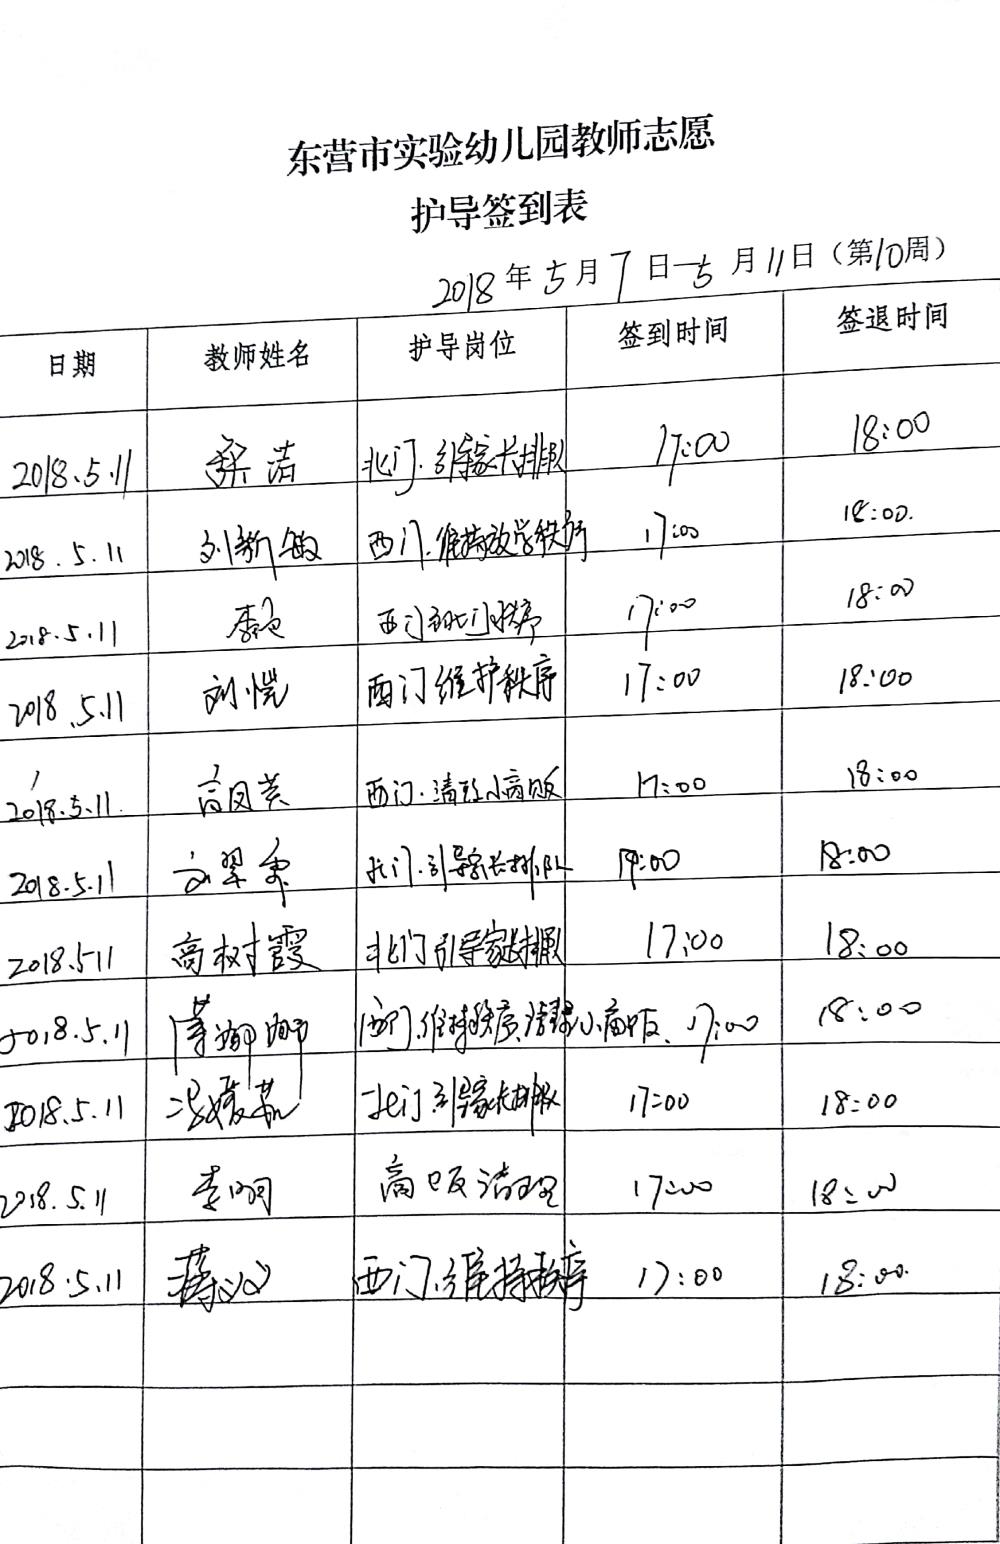 东营市实验幼儿园教师志愿
护导签到表
2018年5月7日—5月11日（第10周）
日期 教师姓名 护导岗位 签到时间 签退时间
2018.5.11 梁洁 北门.引导家长排队 17:00 18:00
2018.5.11 刘新敏 西门.维持放学秩序 17:00 18:00.
2018.5.11 西门 秩序 17:00 18:00
2018.5.11 刘恺 西门维护秩序 17:00 18:00
2018.5.11. 高凤英 西门.清理小商贩 17:00 18:00
2018.5.11 北门.引导家长排队 17:00 18:00
2018.5.11 高树霞 北门引导家长排队 17:00 18:00
2018.5.11 西门.维持秩序,清理小商贩、 17:00 18:00
2018.5.11 北门.引导家长排队 17:00 18:00
2018.5.11 李明 商贩清理 17:00 18:00
2018.5.11 西门.维持秩序 17:00 18:00.